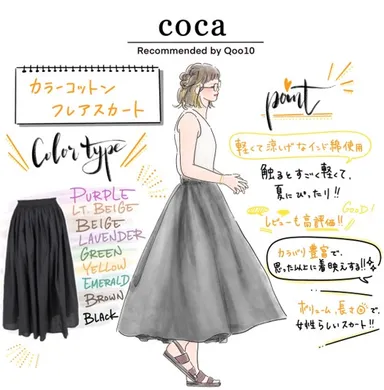 coca
Recommended by Qoo10
カラーコットン
フレアスカート
Color type
PURPLE
LT. BEIGE
BEIGE
LAVENDER
GREEN
YELLOW
EMERALD
BROWN
BLACK
point
軽くて涼しげなインド綿使用
触るとすごく軽くて、
夏にぴったり!!
GooD!
レビューも高評価!!
カラバリ豊富で、
思った以上に着映えする!!
ボリューム、長さ◎で、
女性らしいスカート!!